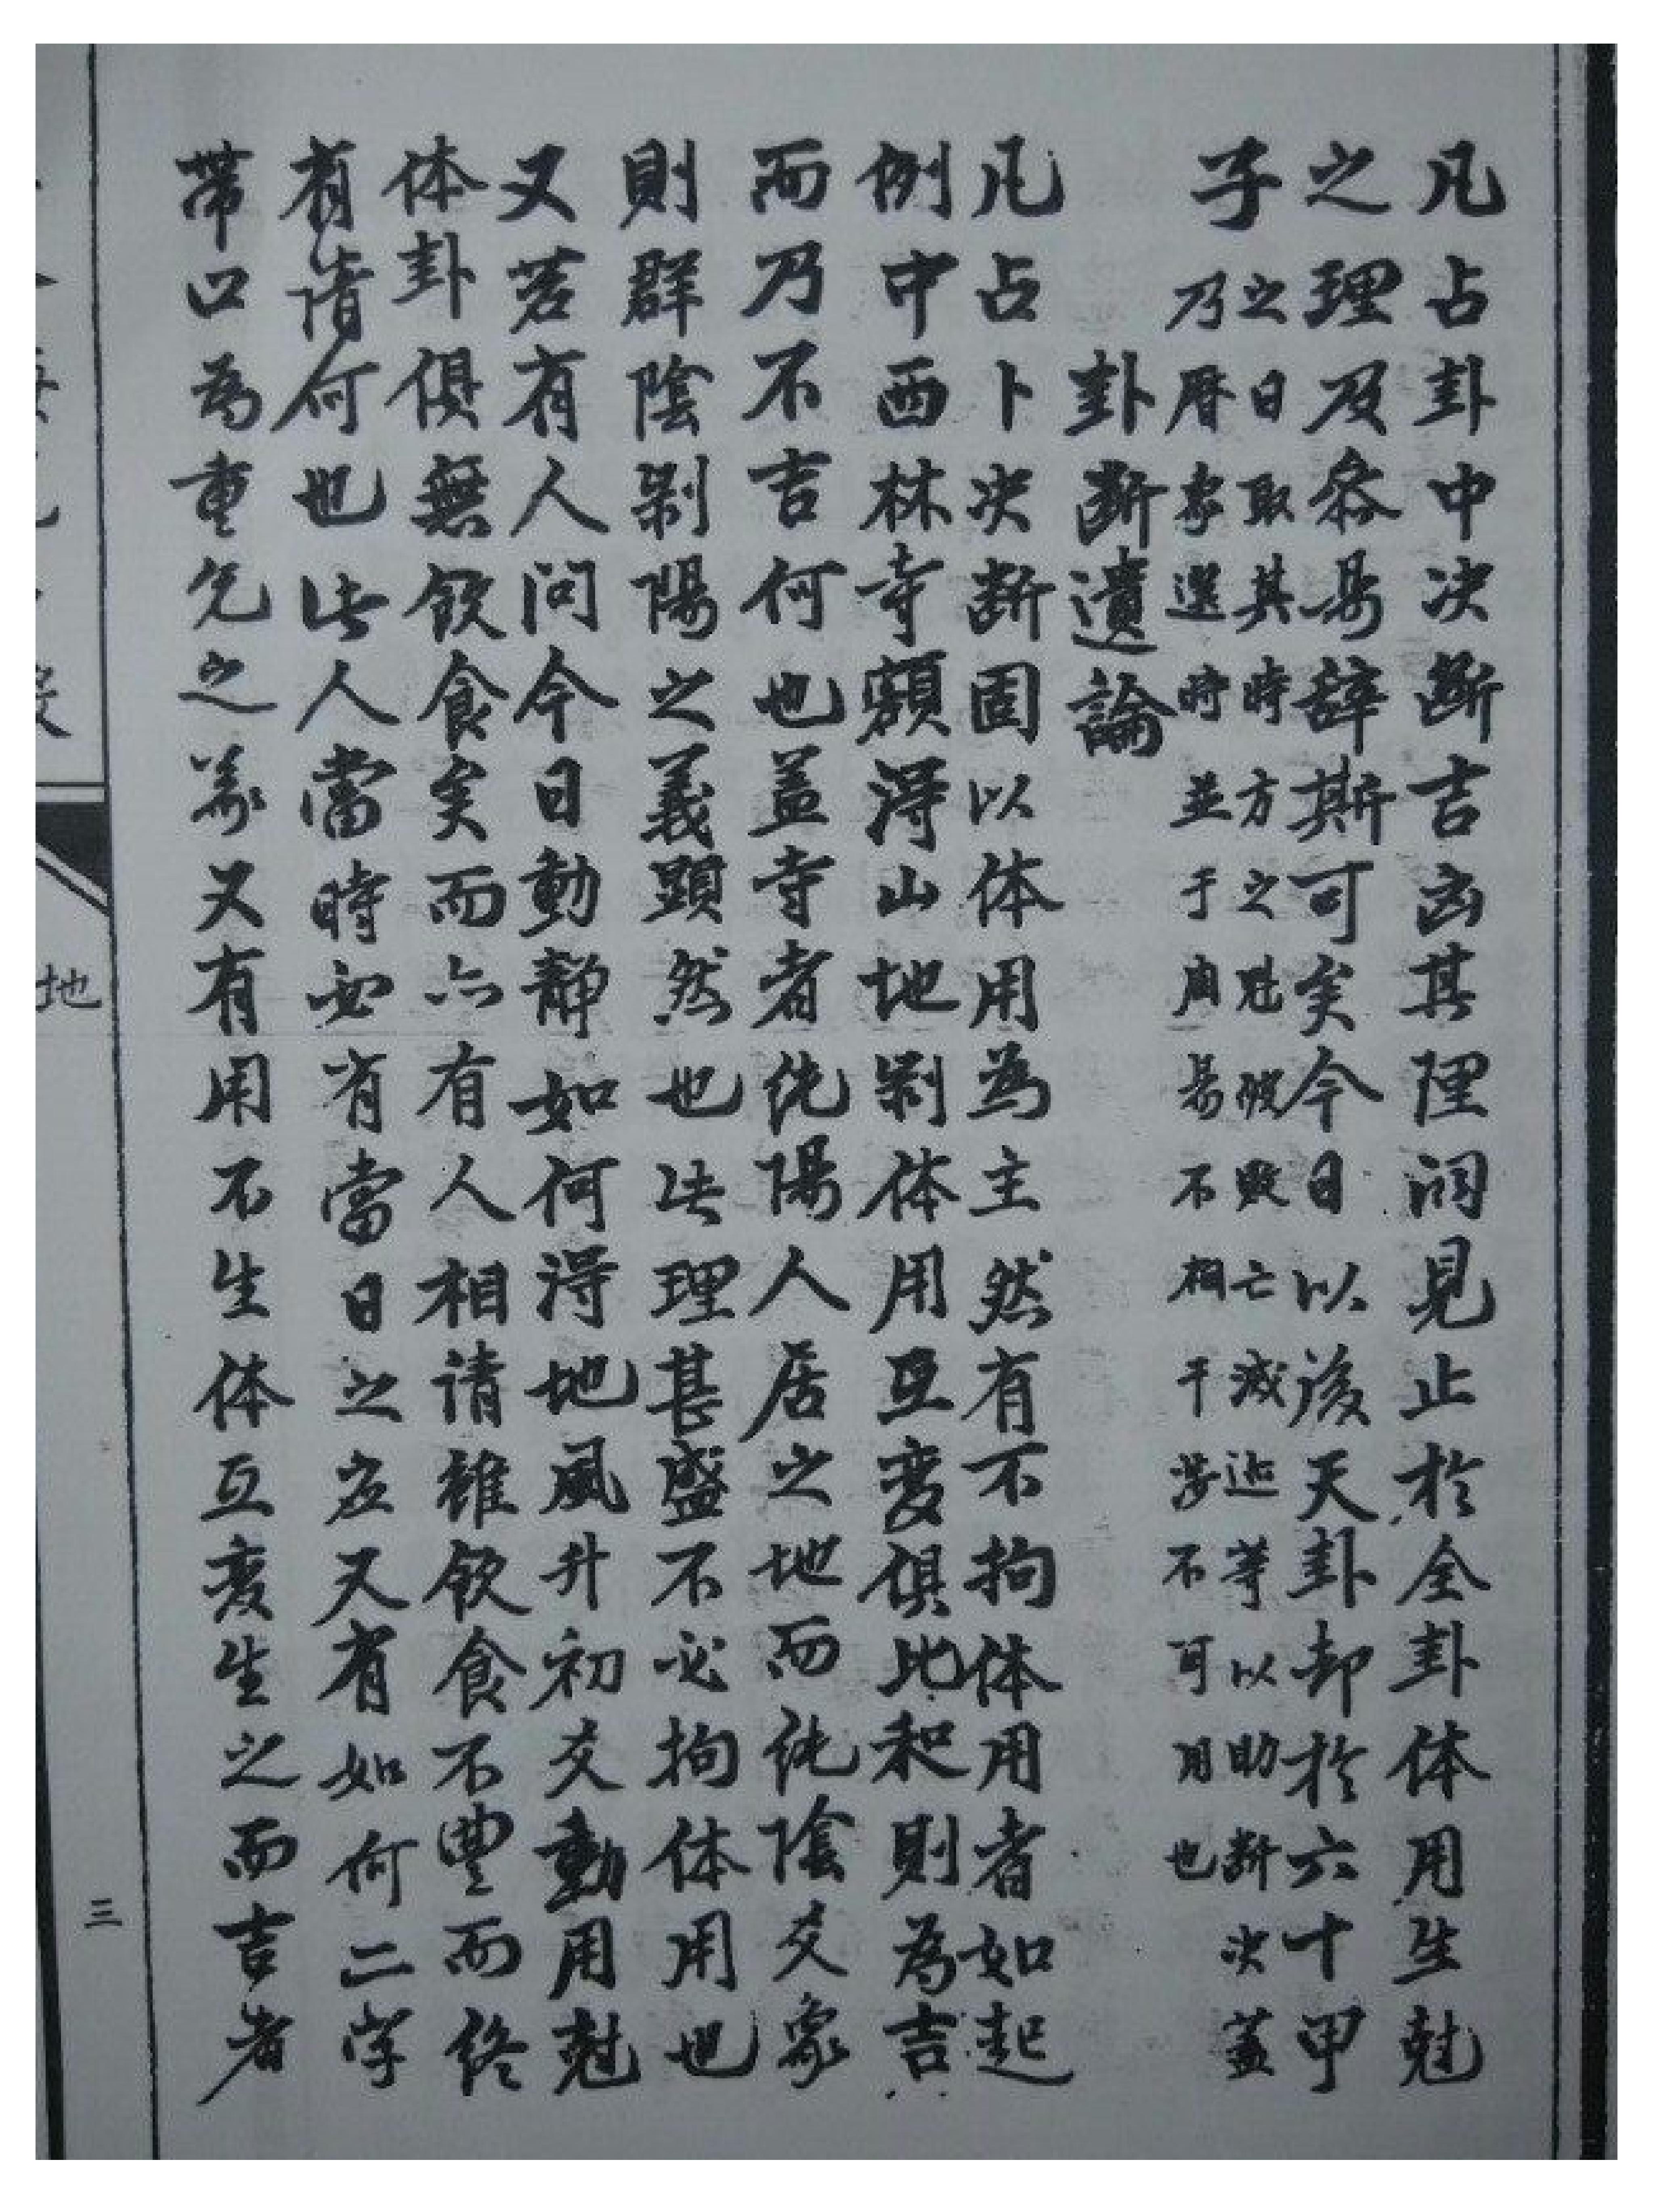 凡占卦中决断吉凶其理洞見止於全卦体用生尅
之理及參易辞斯可矣今日以後天卦却於六十甲
子
之日取其時方之尅破敗亡减迯等以助断决蓋
乃暦家選時並于周易不相干㝍不可用也
卦断遺論
凡占卜决断固以体用為主然有不拘体用者如起
例中西林寺額淂山地剝体用互变俱比和則為吉
而乃不吉何也盖寺者纯陽人居之地而纯陰爻象
則群陰剝陽之義顕然也此理甚盛不必拘体用也
又若有人问今日動静如何淂地風升初爻動用尅
体卦俱無飲食矣而亦有人相请雖飲食不豊而终
有请何也此人當時必有當日之应又有如何二字
帯口為重兑之義又有用不生体互变生之而吉者
地
三